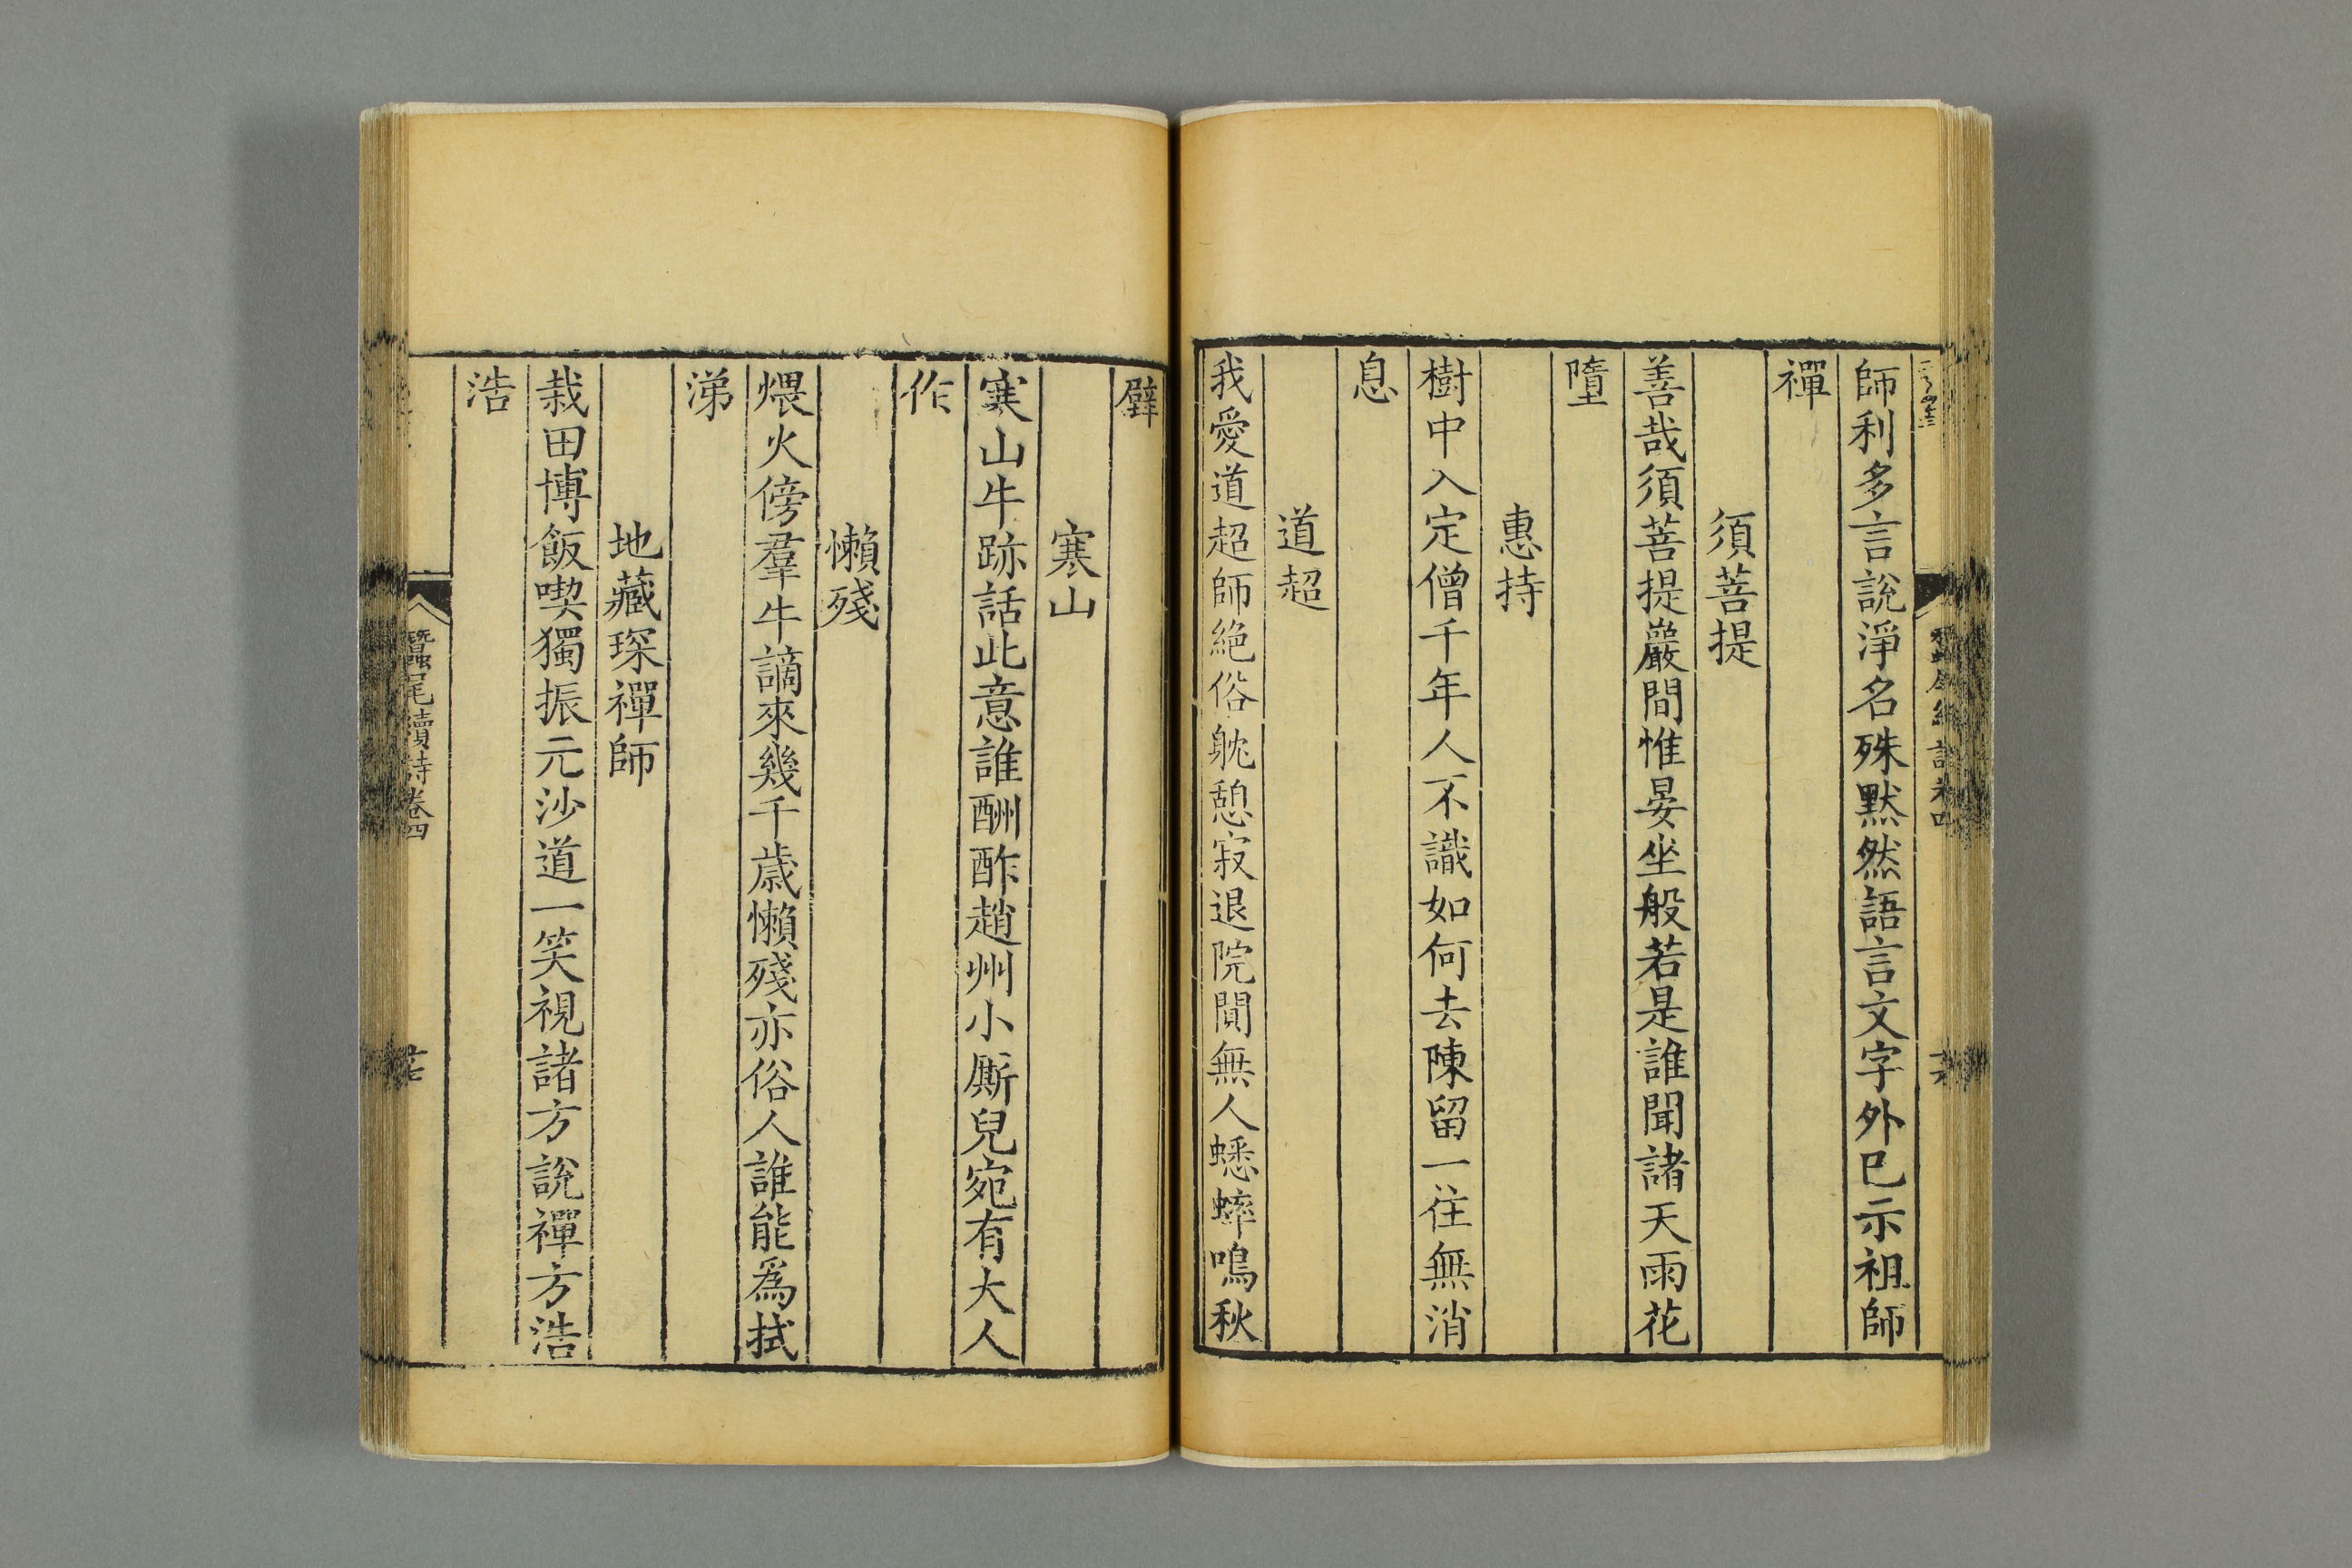 師利多言說淨名殊默然語言文字外巳示祖師
禪
須菩提
善哉須菩提巖間惟晏坐般若是誰聞諸天雨花
墮
惠持
樹中入定僧千年人不識如何去陳留一往無消
息
道超
我愛道超師絶俗躭憩寂退院閴無人蟋蟀鳴秋
壁
寒山
寒山牛跡話此意誰酬酢趙州小厮兒宛有大人
作
懶殘
煨火傍羣牛謫來幾千歲懶殘亦俗人誰能爲拭
涕
地藏琛禪師
栽田博飯喫獨振元沙道一笑視諸方說禪方浩
浩
蠶尾續詩卷四